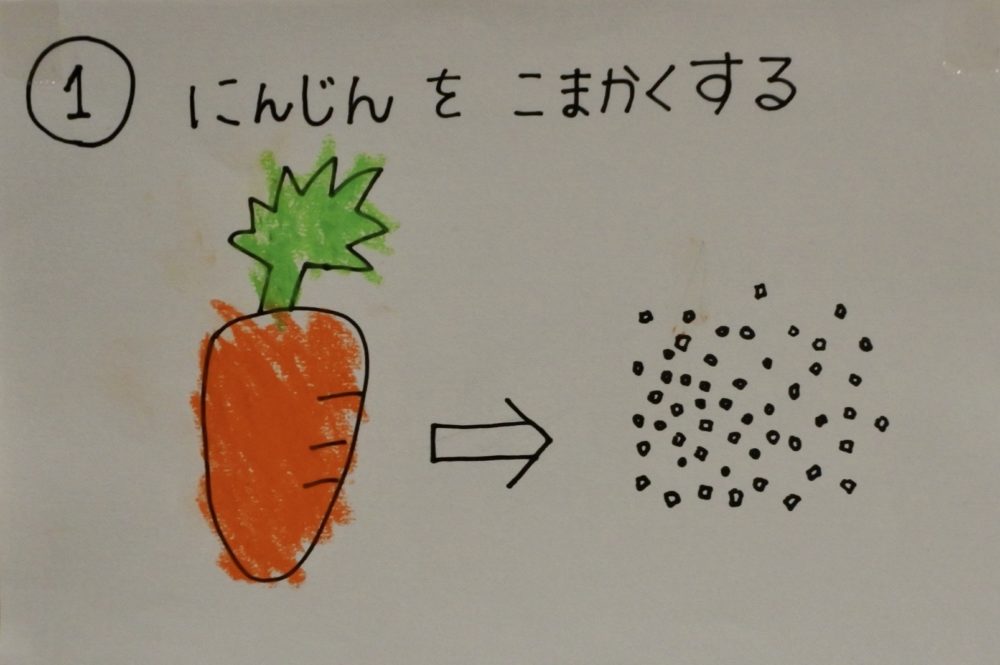 ① にんじん を こまかくする